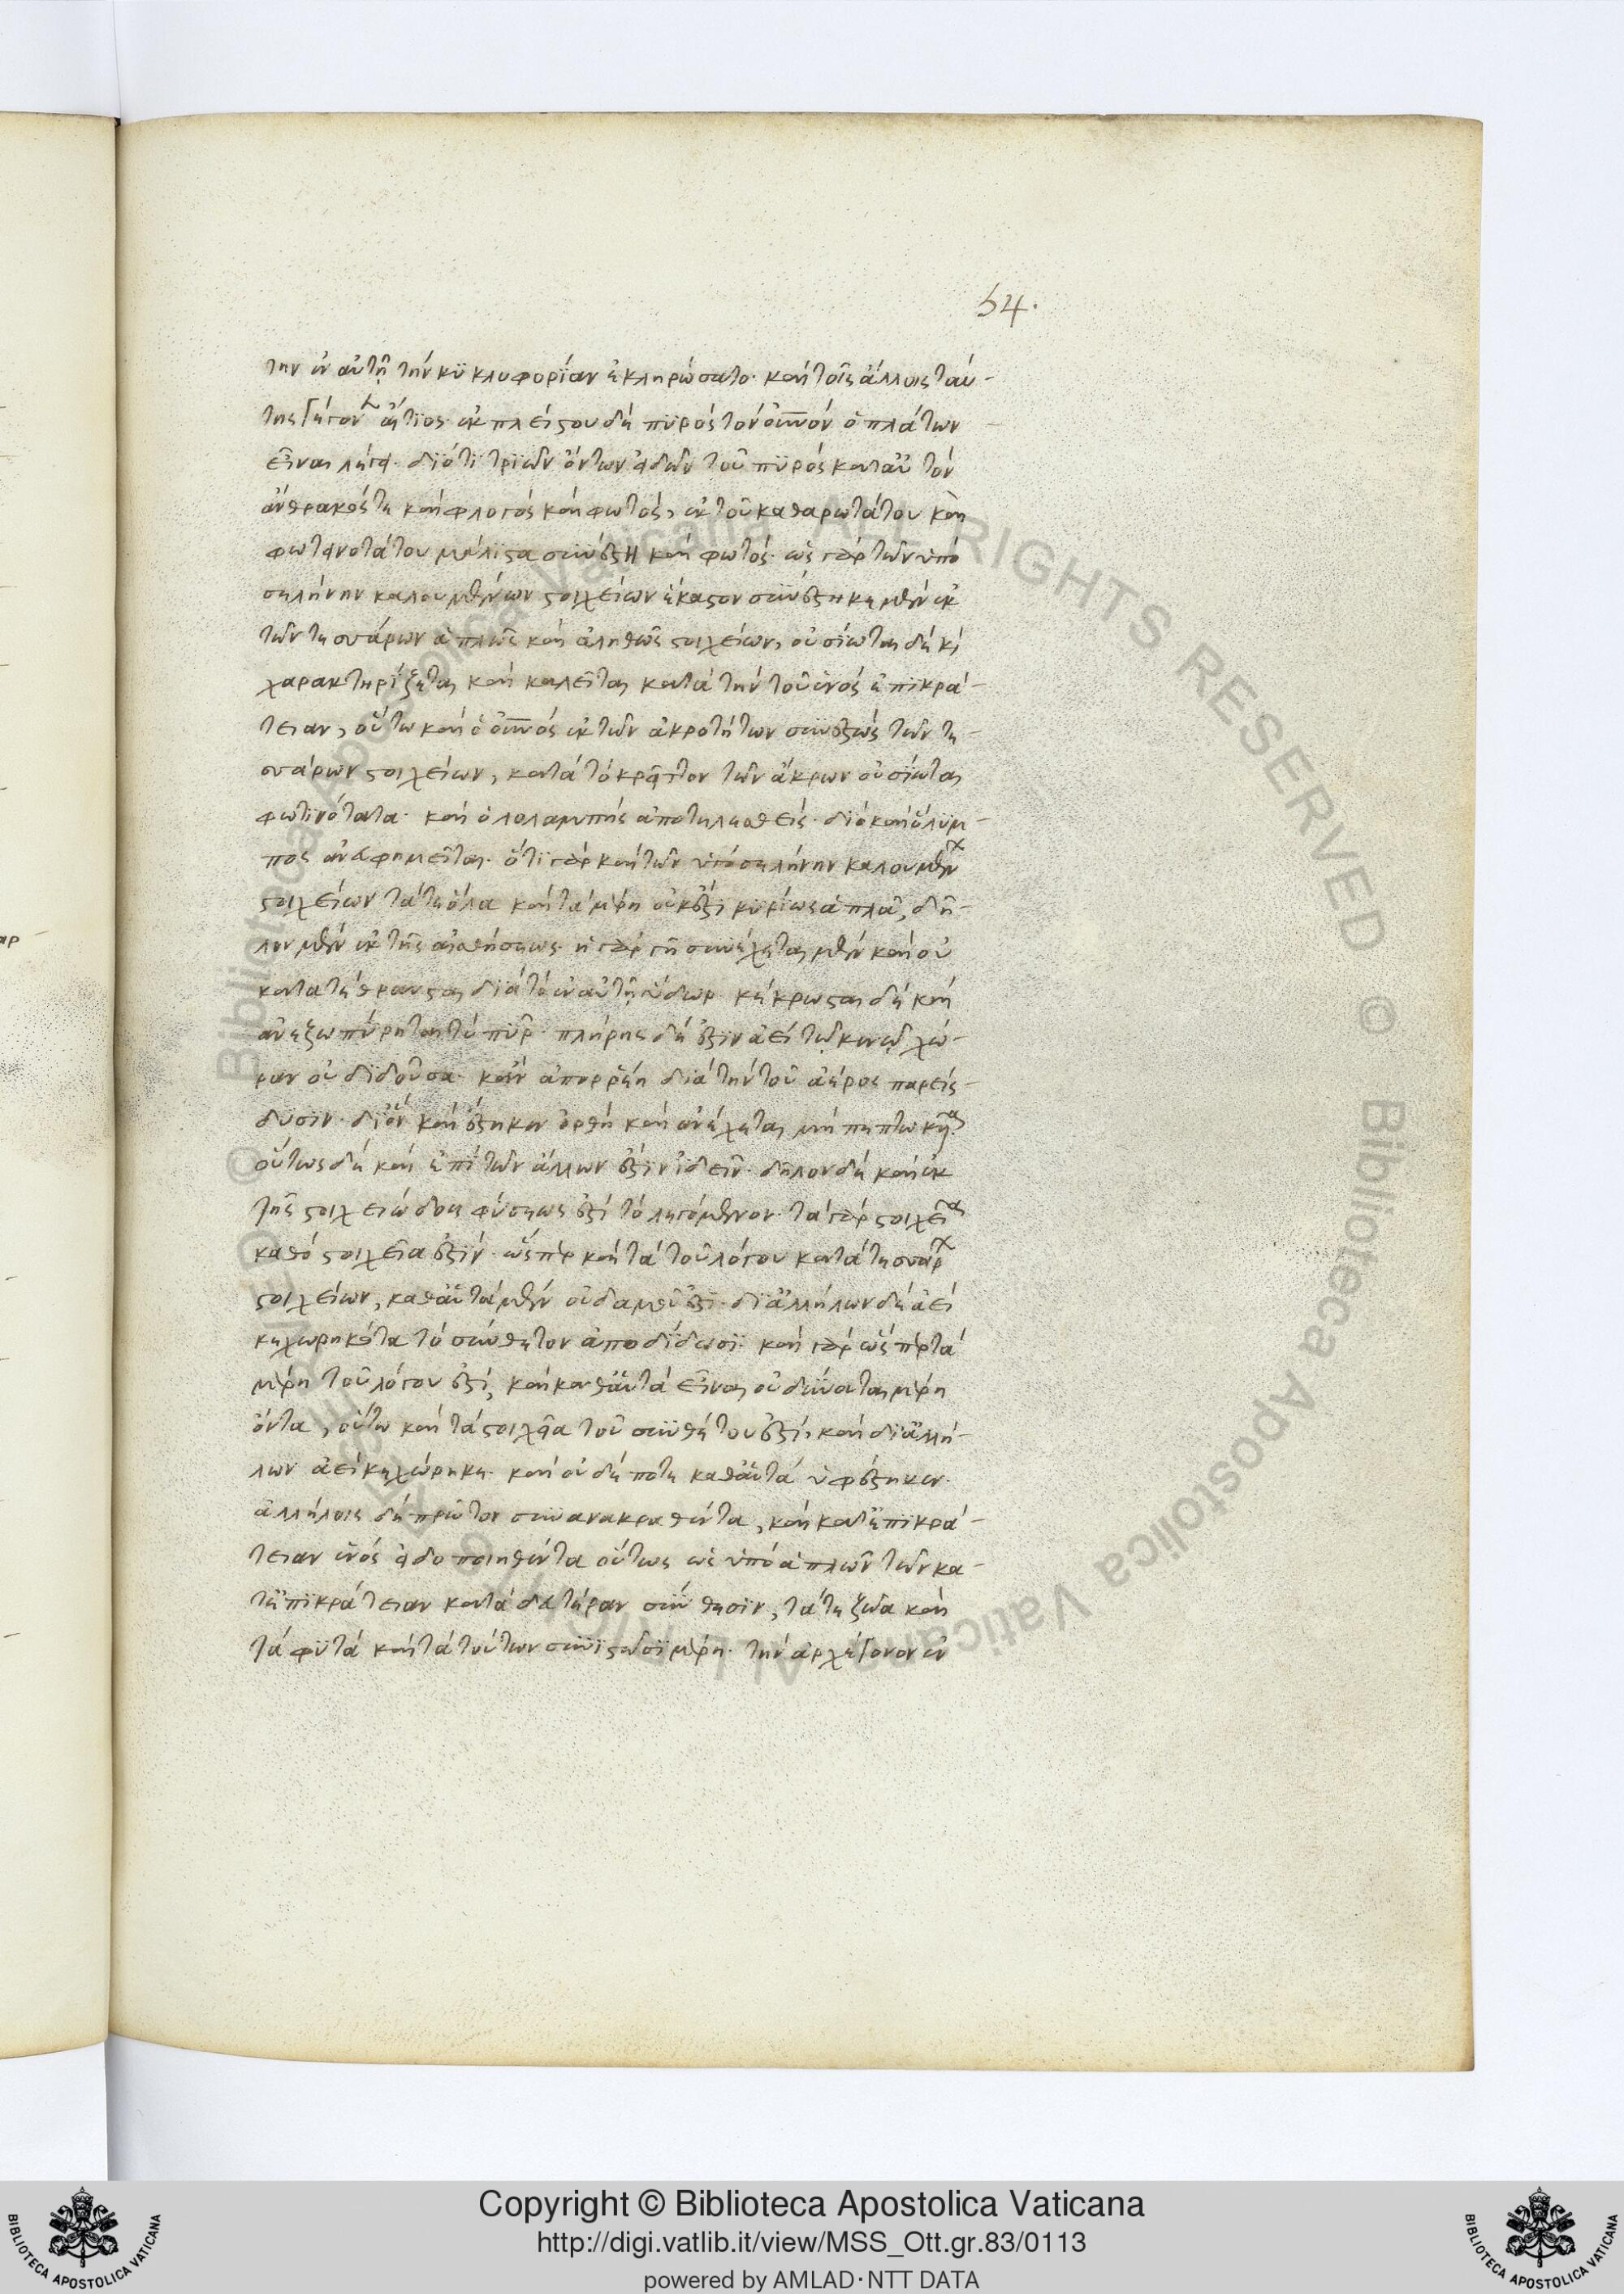 54.
την ἐν αὐτῇ τὴν κϋκλοφορίαν ἐκληρώσατο· καὶ τοῖς ἄλλοις ταύ-
της γέγον αἴτϊος· ἐκ πλείστου δὲ πϋρὸς τὸν οὐνὸν ὁ πλάτων
εἶναι λέγει· διότι τριῶν ὄντων εἰδῶν τοῦ πϋρὸς κατ' αὐτὸν
ἄνθρακός τε καὶ φλογὸς καὶ φωτός, ἐκ τοῦ καθαρωτάτου καὶ
φωτεινοτάτου μάλιστα συνέστη καὶ φωτός· ὡς γὰρ τῶν ὑπὸ
σελήνην καλουμένων στοιχείων ἕκαστον συνέστηκε μὲν ἐκ
τῶν τεσσάρων ἁπλῶς καὶ ἀληθῶς στοιχείων, οὐσίωται δὲ κὶ
χαρακτηρίζεται καὶ καλεῖται κατὰ τὴν τοῦ ἑνὸς ἐπϊκρά-
τειαν, οὕτω καὶ ὁ οὐνὸς ἐκ τῶν ἀκροτήτων συνεστὼς τῶν τε-
σσάρων στοιχείων, κατὰ τὸ κρεῖττον τῶν ἄκρων οὐσίωται
φωτϊνότατα· καὶ ὁλολαμπὴς ἀποτελεσθείς· διὸ καὶ ὄλϋμ-
πος ἀνευφημεῖται· ὅτι γὰρ καὶ τῶν ὑπὸ σελήνην καλουμέν
στοιχείων τά τε ὅλα καὶ τὰ μέρη οὐκ ἐστὶ κϋρίως ἁπλᾶ, δῆ-
λον μὲν ἐκ τῆς αἰσθήσεως· ἡ γὰρ γῆ συνέχεται μὲν καὶ οὐ
κατατέθραυσται διὰ τὸ ἐν αὐτῇ ὕδωρ· κέχρωσται δὲ καὶ
ἀνεζωπύρηται τῷ πϋρί· πλήρης δέ ἐστιν ἀεὶ τῷ κενῷ χώ-
ραν οὐ διδοῦσα· κἂν ἀπορραγῇ διὰ τὴν τοῦ ἀέρος παρείσ-
δυσιν· δι' ὃν καὶ ἕστηκεν ὀρθὴ καὶ ἀνέχεται μὴ πεπτωκῖα
οὕτως δὲ καὶ ἐπὶ τῶν ἄλλων ἐστϊν ἰδεῖν· δῆλον δὲ καὶ ἐκ
τῆς στοιχειώδους φύσεως ἐστὶ τὸ λεγόμενον· τὰ γὰρ στοιχεῖα
καθὸ στοιχεῖα ἐστϊν· ὥσπερ καὶ τὰ τοῦ λόγου κατὰ τεσσάρ
στοιχείων, καθ' αὑτὰ μὲν οὐδαμοῦ ἐστϊ· δϊ' ἀλλήλων δὲ ἀεὶ
κεχωρηκότα τὸ σύνθετον ἀποδίδωσϊ· καὶ γὰρ ὥσπερ τὰ
μέρη τοῦ λόγου ἐστὶ, καὶ καθ' αὑτὰ εἶναι οὐ δύναται μέρη
ὄντα, οὕτω καὶ τὰ στοιχεῖα τοῦ συνθέτου ἐστὶ, καὶ δι' ἀλλή-
λων ἀεὶ κεχώρηκε· καὶ οὐδέποτε καθ' αὑτὰ ὑφέστηκεν·
ἀλλήλοις δὲ πρῶτον συνανακραθέντα, καὶ κατ' ἐπϊκρά-
τειαν ἑνὸς εἰδοποιηθέντα οὕτως ὡς ὑπὸ ἁπλῶν τῶν κα-
τ' ἐπϊκράτειαν κατὰ δευτέραν σύνθεσϊν, τά τε ζῶα καὶ
τὰ φϋτὰ καὶ τὰ τούτων συνϊστῶσϊ μέρη· τὴν ἀρχέγονον ἐν
Copyright © Biblioteca Apostolica Vaticana
http://digi.vatlib.it/view/MSS_Ott.gr.83/0113
powered by AMLAD·NTT DATA